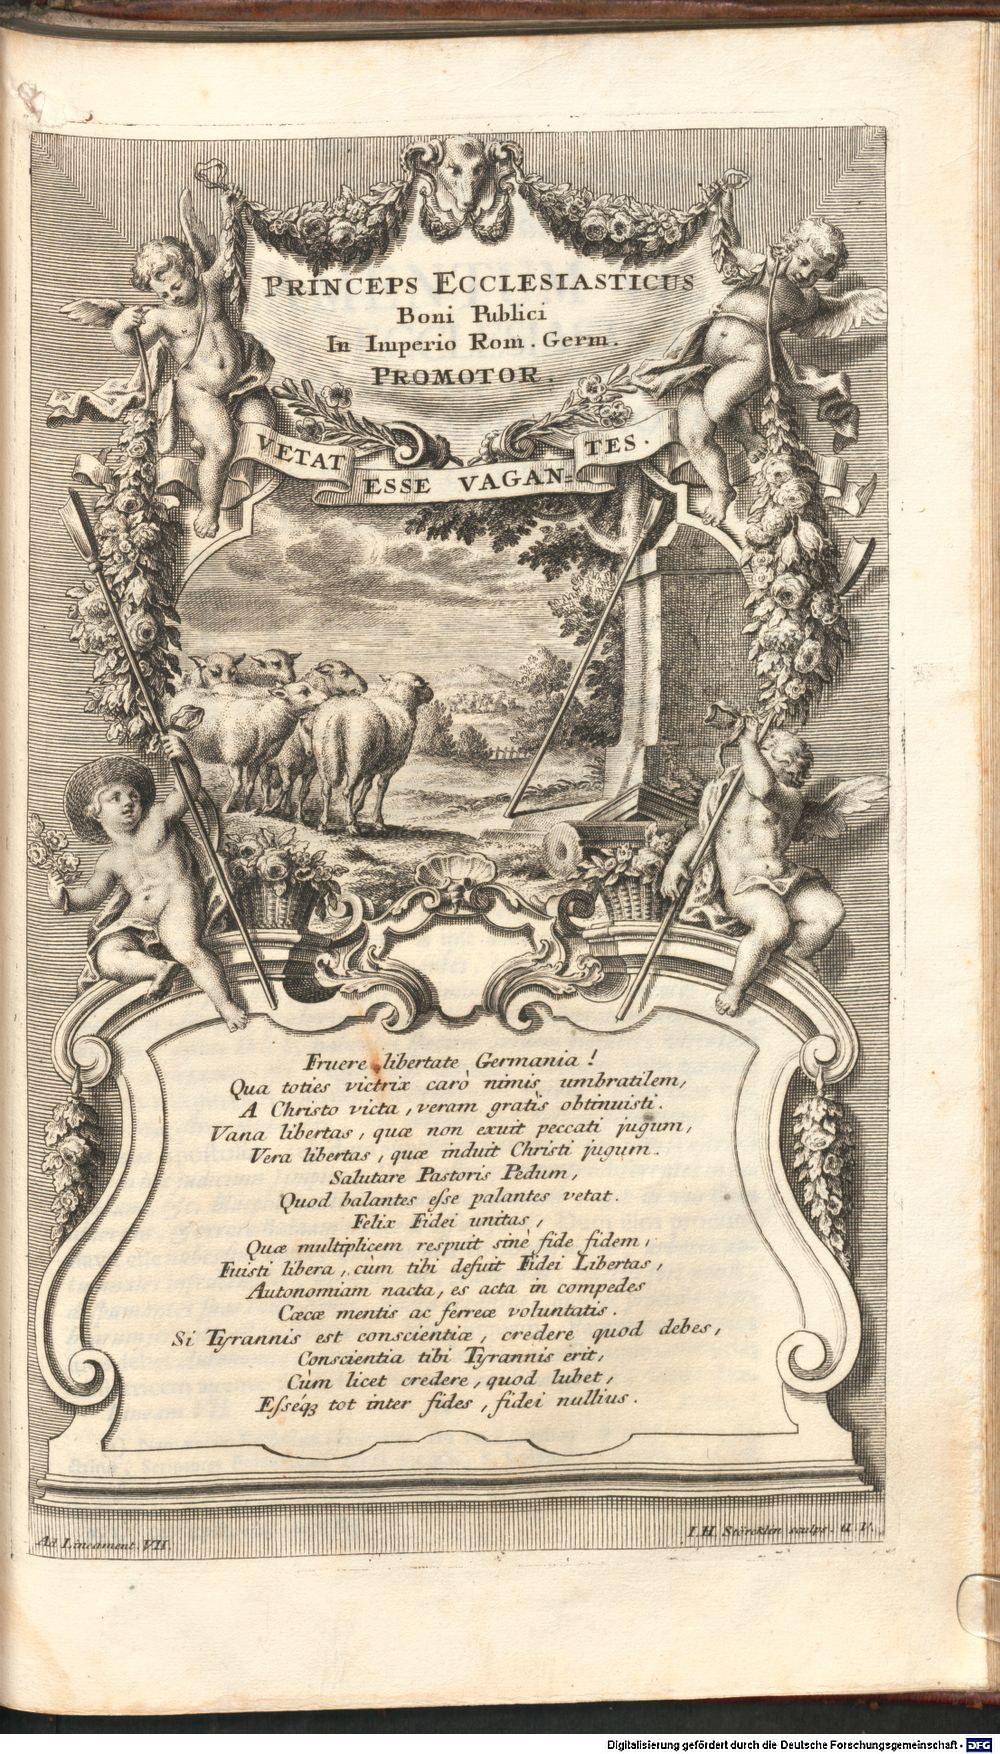 PRINCEPS ECCLESIASTICUS
Boni Publici
In Imperio Rom. Germ.
PROMOTOR.
VETAT ESSE VAGAN=TES.
Fruere libertate Germania!
Qua toties victrix carò nimis umbratilem,
A Christo victa, veram gratìs obtinuisti.
Vana libertas, quæ non exuit peccati jugum,
Vera libertas, quæ induit Christi jugum.
Salutare Pastoris Pedum,
Quod balantes eſse palantes vetat.
Felix Fidei unitas,
Quæ multiplicem respuit sinè fide fidem,
Fuisti libera, cùm tibi defuit Fidei Libertas,
Autonomiam nacta, es acta in compedes
Cæcæ mentis ac ferreæ voluntatis.
Si Tyrannis est conscientiæ, credere quod debes,
Conscientia tibi Tyrannis erit,
Cùm licet credere, quod lubet,
Eſséqȝ tot inter fides, fidei nullius.
Ad Lineament. VII.
I. H. Störcklin sculps. A. V.
Digitalisierung gefördert durch die Deutsche Forschungsgemeinschaft - DFG